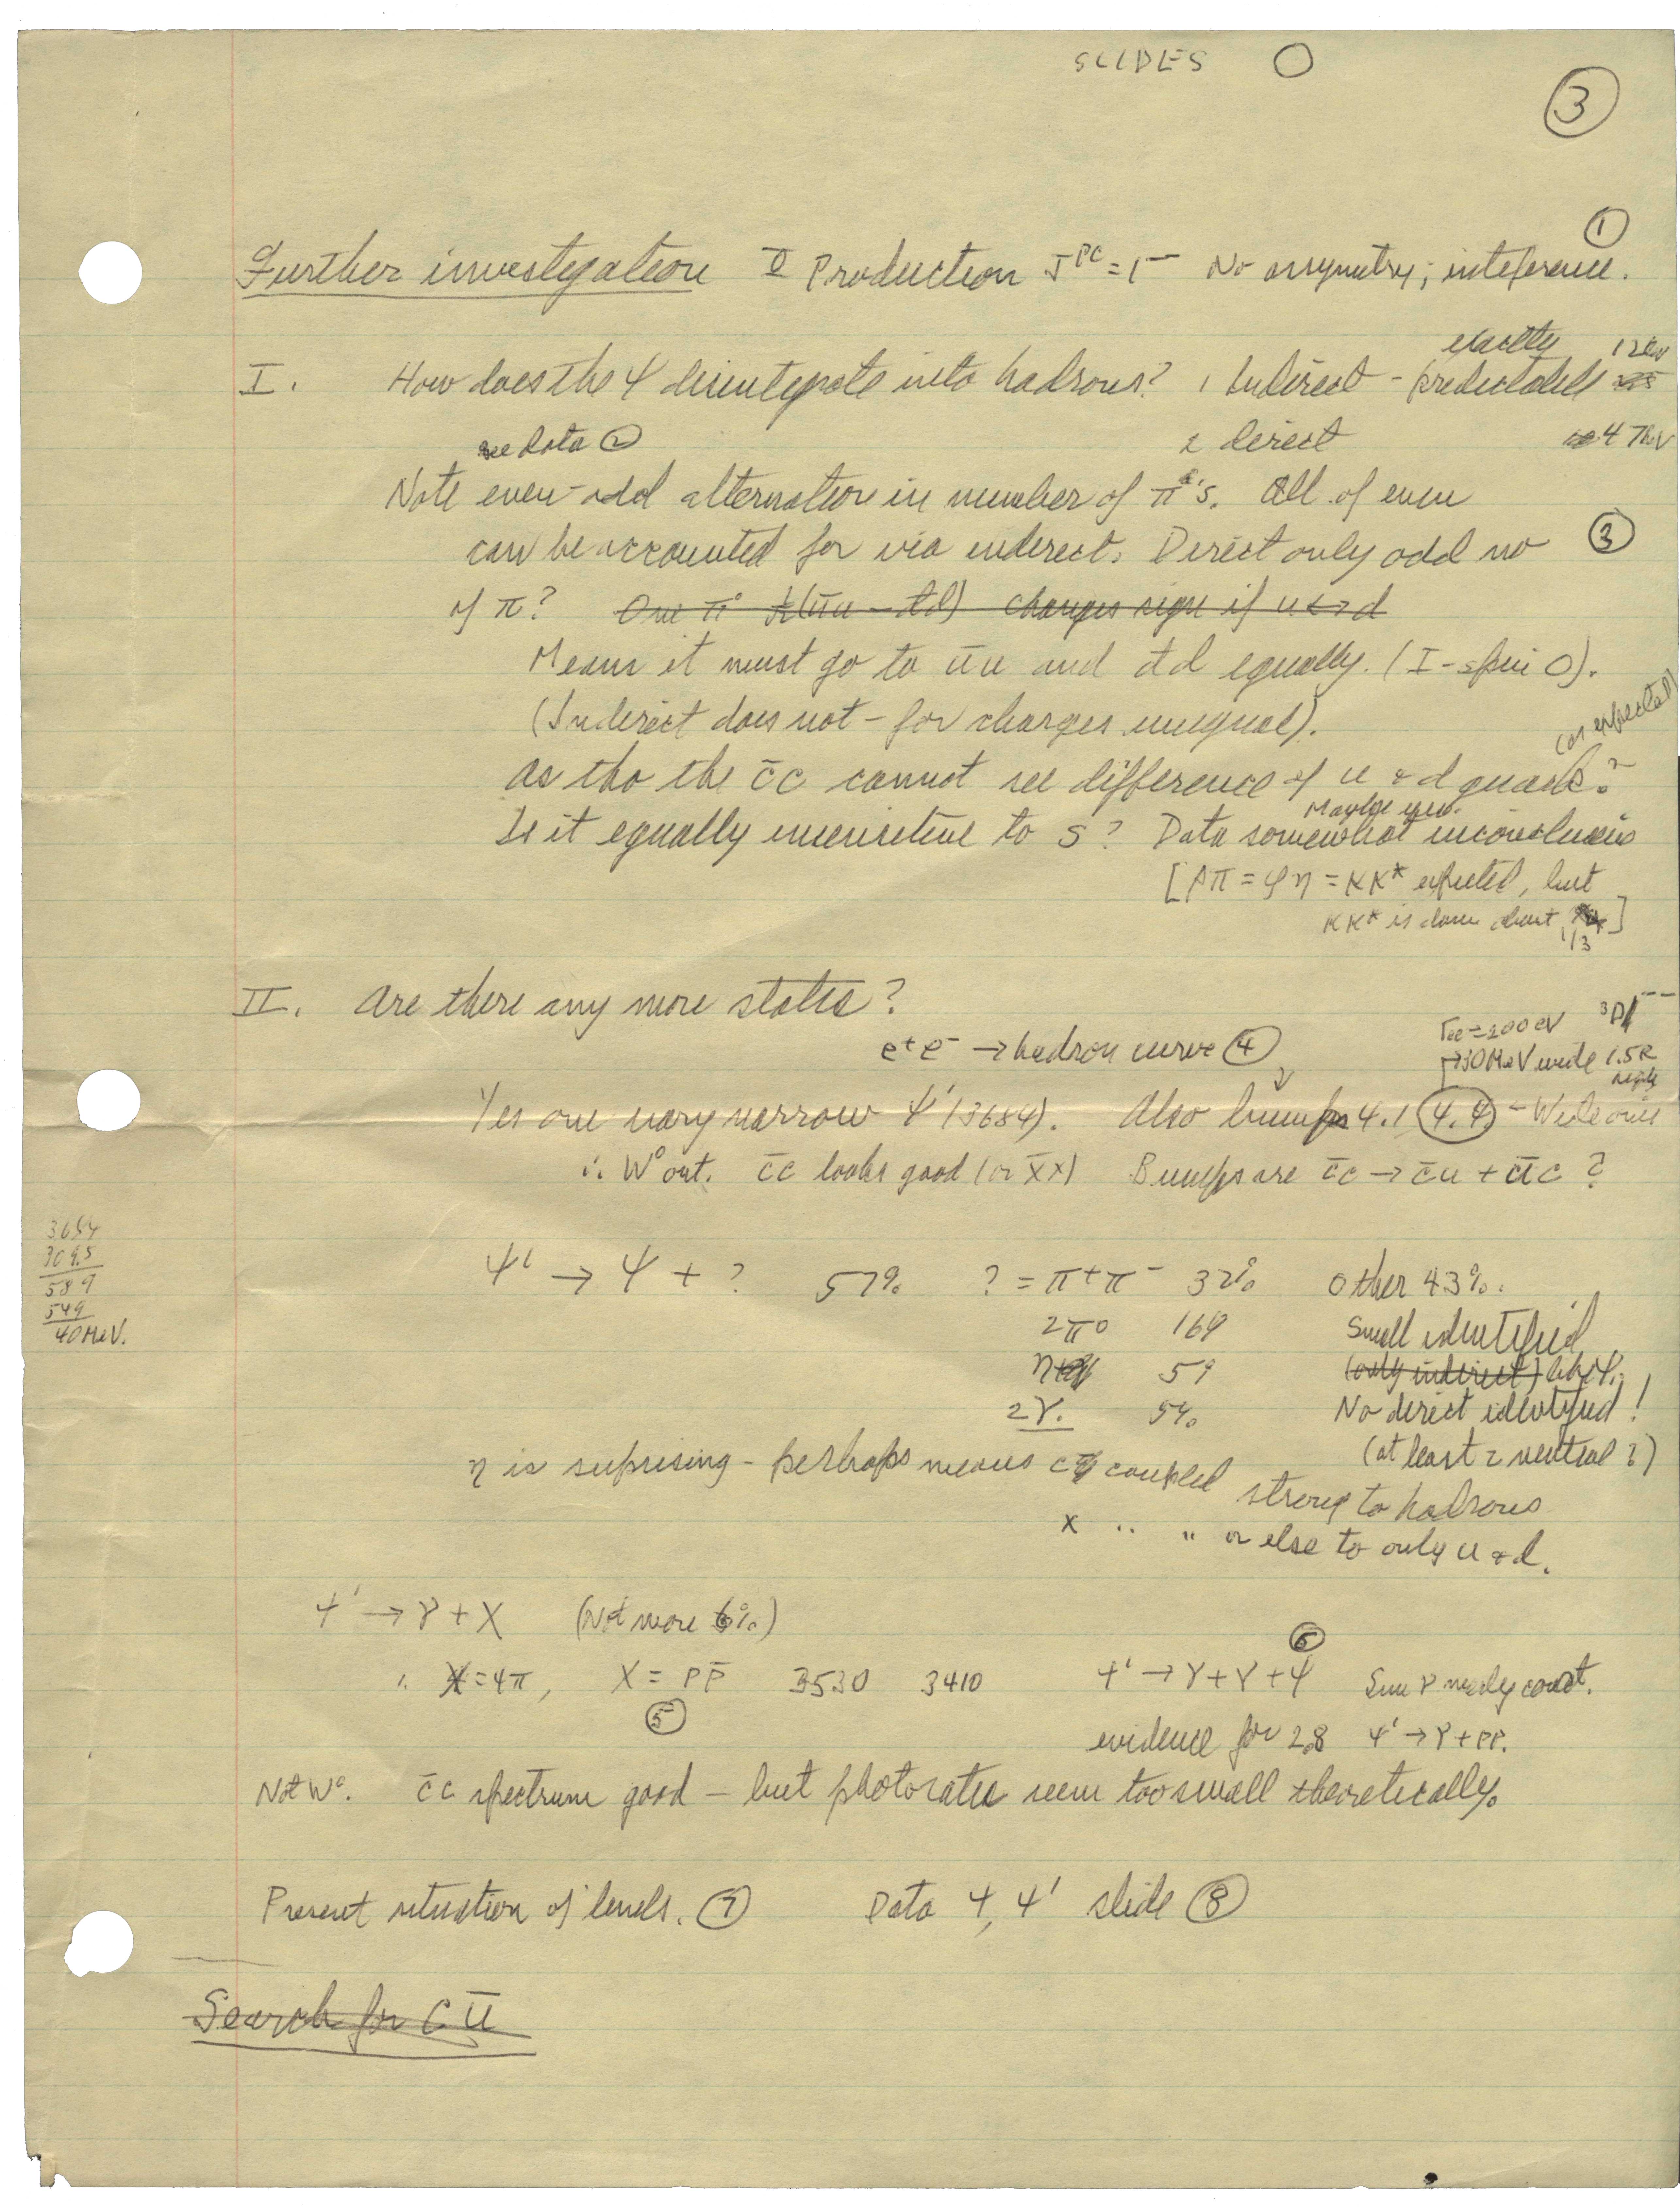 SLIDES O
③
①
Further investigation Production J^PC = 1^- No assymetry; inteference.
exactly 12 keV
I. How does the ψ disintegrate into hadrons? 1 Indirect - predictable
see data ② 2 direct 47 keV
Note even-odd alternation in number of π's. All of even
can be accounted for via indirect. Direct only odd no ③
of π? One π° (ūu - d̄d) changes sign if u↔d
Means it must go to ūu and d̄d equally. (I-spin 0).
(Indirect does not - for charges unequal).
(as expected)
As tho the c̄c cannot see difference of u & d quark?
Maybe yes.
Is it equally insensitive to s? Data somewhat inconclusive
[ρπ = φη = KK* expected, but
KK* is down about 1/3]
II. Are there any more states?
e+ e- → hadron curve ④ Γee = 200 eV ³D1^--
30 MeV wide 1.5R
Yes one very narrow ψ' (3684). Also bumps 4.1 4.4 - Wide ones
∴ W° out. c̄c looks good (or x̄x) Bumps are c̄c → c̄u + ūc ?
3684
3095
589
549
40 MeV.
ψ' → ψ + ? 57% ? = π+π- 32% Other 43%.
2π° 16% Small identified
η 5% (only indirect) like ψ.
2γ. 5% No direct identified!
(at least 2 neutral?)
η is suprising - perhaps means coupled strong to hadrons
x " " or else to only u & d.
ψ' → γ + X (Not more 6%)
⑥
X = 4π, X = PP̄ 3530 3410 ψ' → γ + γ + ψ Sum γ nearly const.
⑤
evidence for 2.8 ψ' → γ + PP.
Not W°. c̄c spectrum good - but photorates seem too small theoretically.
Present situation of levels. ⑦ Data ψ, ψ' slide ⑧
Search for c ū